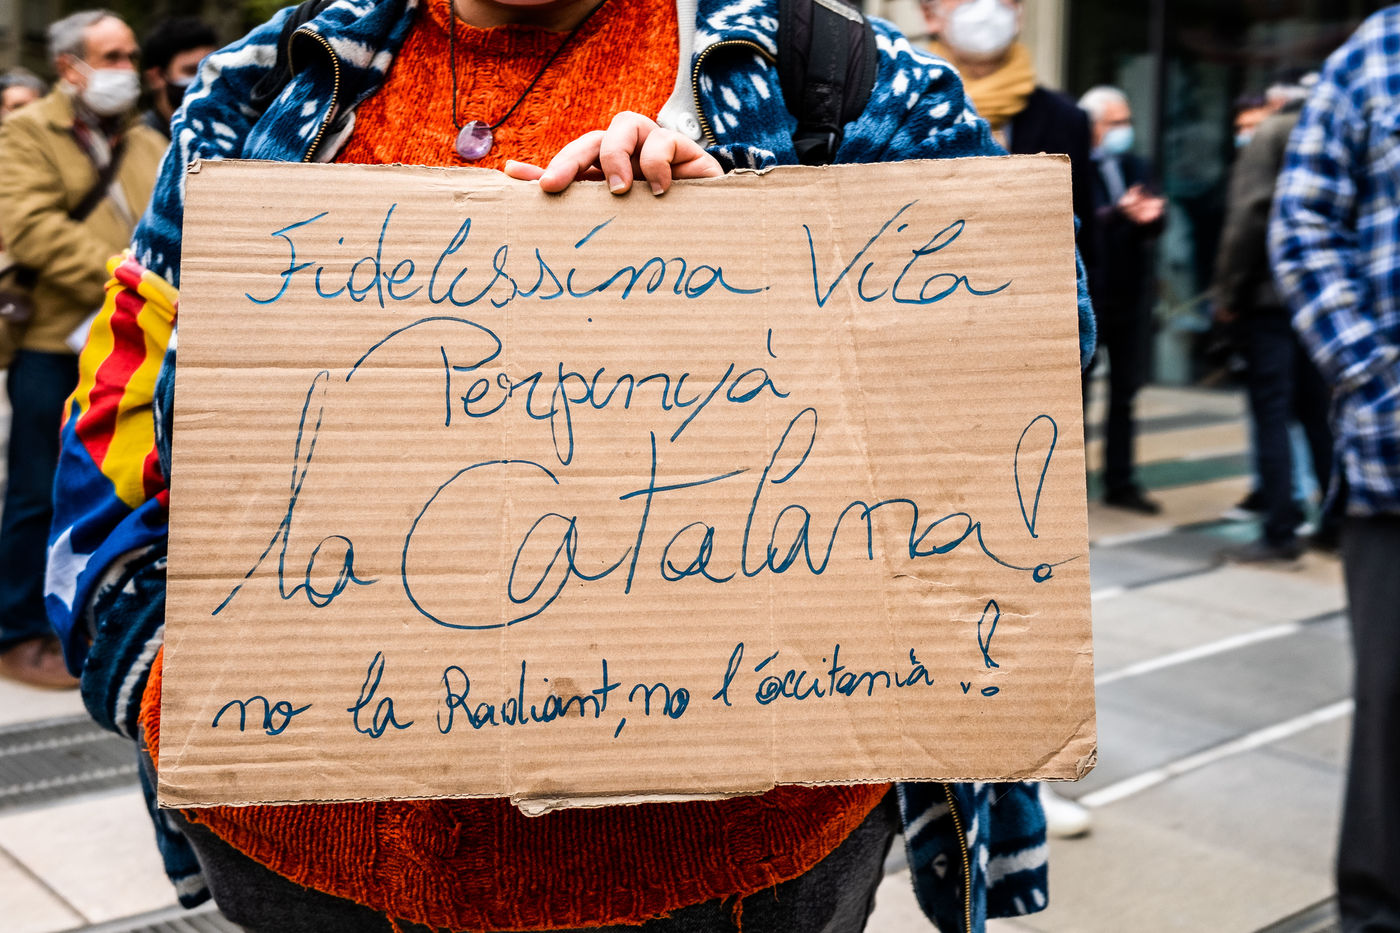 Fidelissima Vila
Perpinyà
la Catalana!
no la Radiant, no l'occitania!